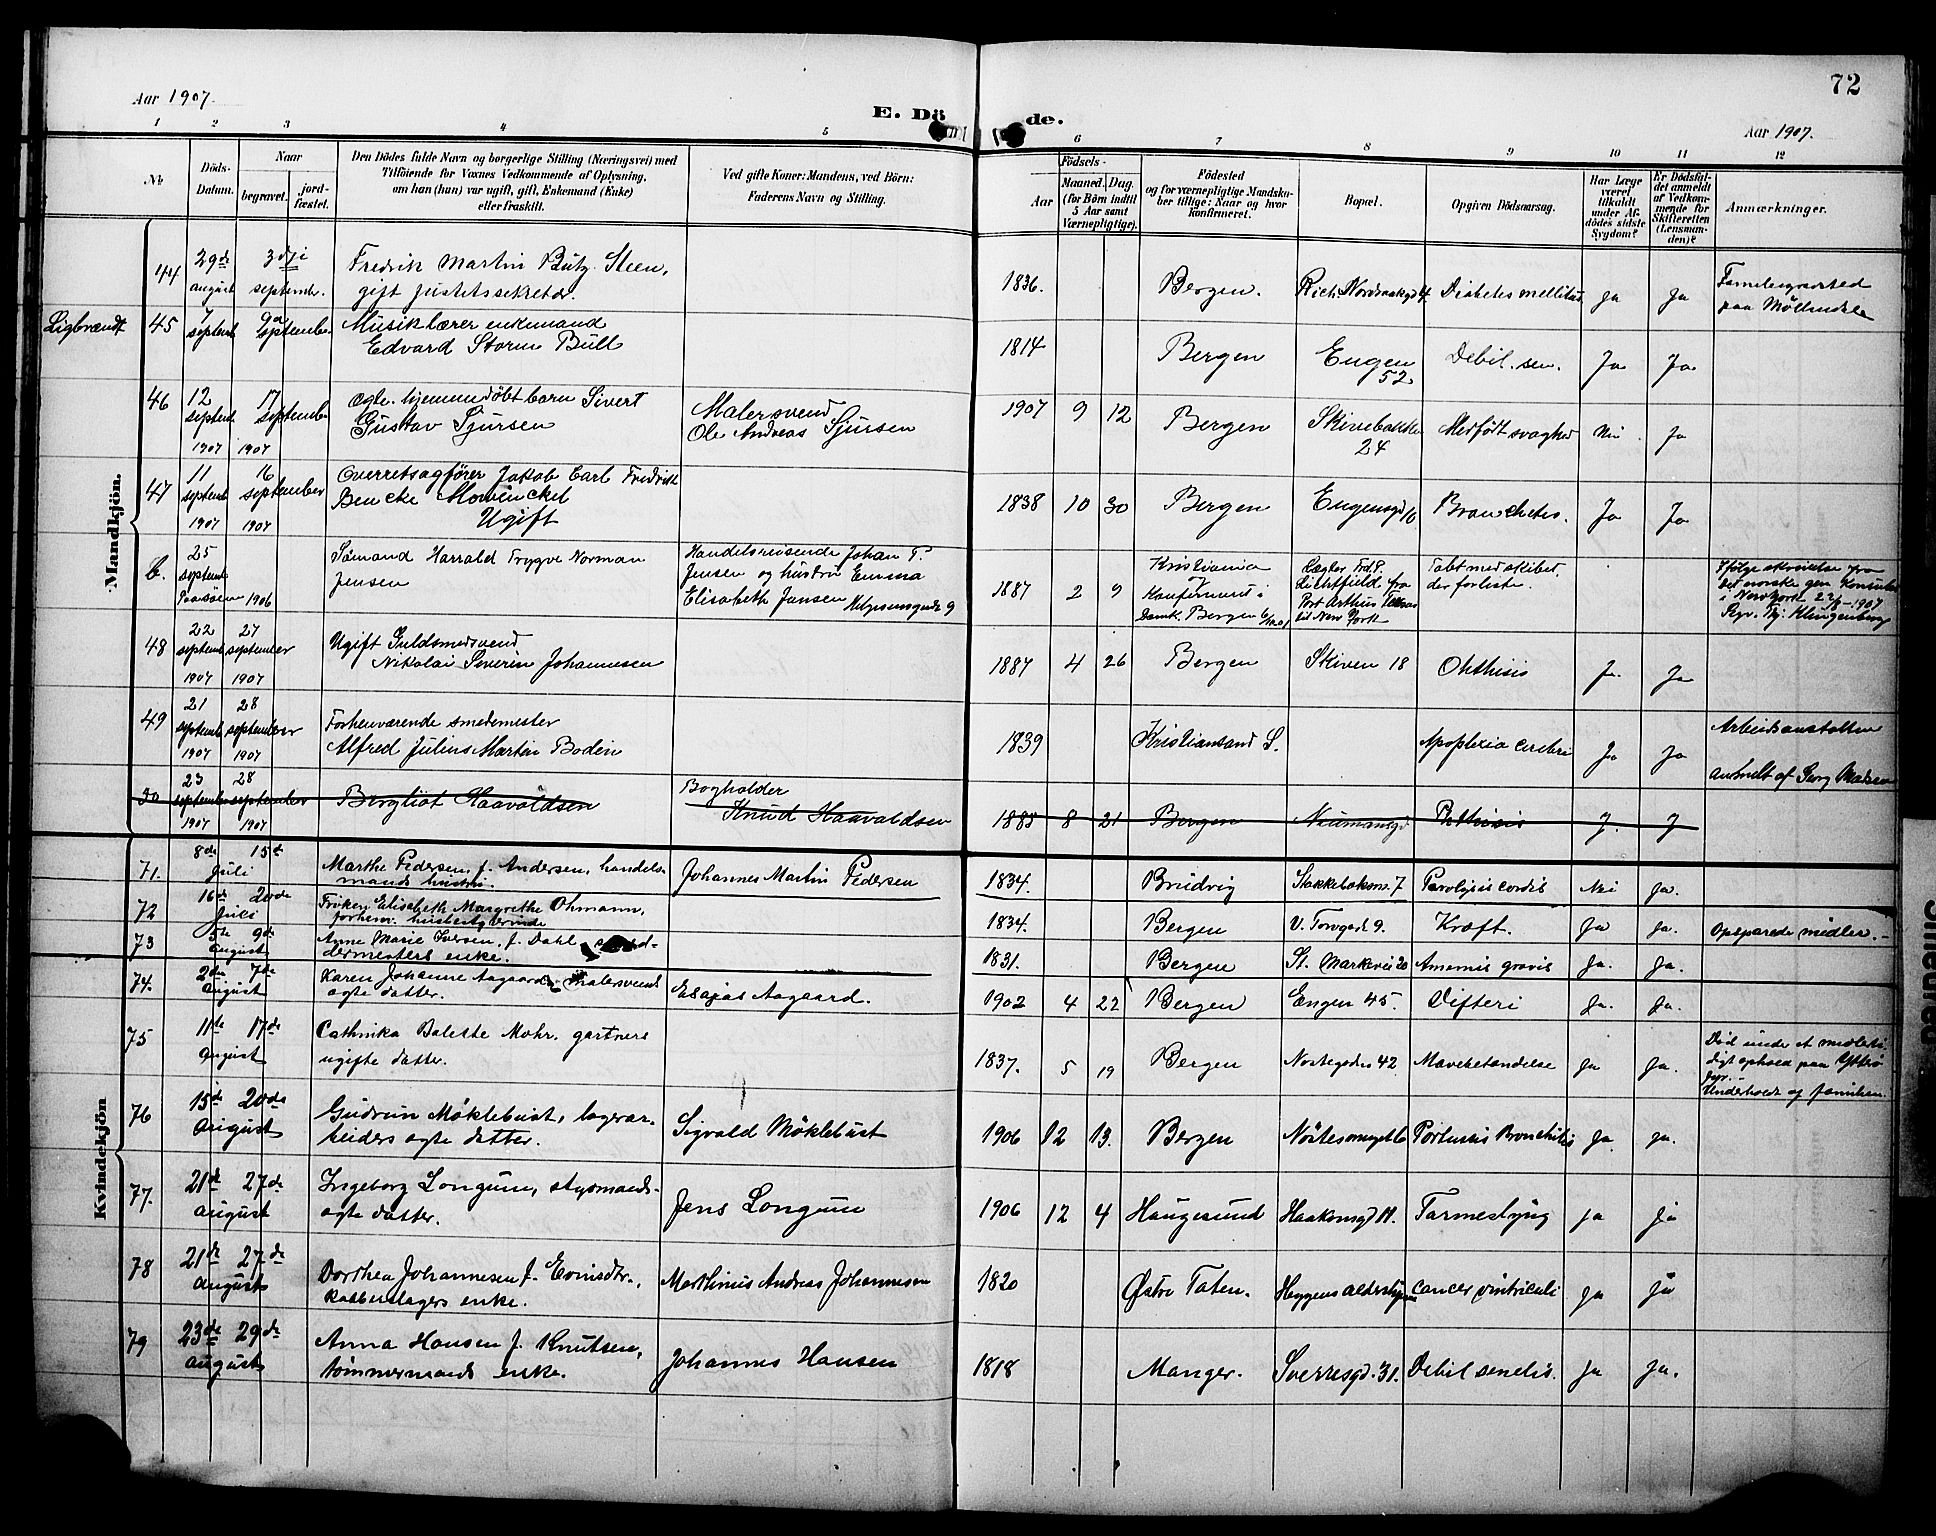 72
Aar 1907.
E. Dö de.
Aar 1907.
1 2 3 4 5 6 7 8 9 10 11 12
No
Döds-
Datum.
Naar
begravet.
jord-
fæstet.
Den Dödes fulde Navn og borgerlige Stilling (Næringsvei) med
Tilföiende for Voxnes Vedkommende af Oplysning,
om han (hun) var ugift, gift, Enkemand (Enke)
eller fraskilt.
Ved gifte Koner: Mandens, ved Börn:
Faderens Navn og Stilling.
Födsels-
Aar
Maaned. Dag.
(for Börn indtil
5 Aar samt
Værnepligtige).
Födested
og for værnepligtige Mandskaber
tillige: Naar og hvor
konfirmeret.
Bopæl.
Opgiven Dödsaarsag.
Har Læge
været
tilkaldt
under Afdödes
sidste
Sygdom?
Er Dödsfaldet
anmeldt
af Vedkommende
for
Skifteretten
(Lensmanden)?
Anmærkninger.
Mandkjön.
44
29de
august
3dji
september.
Fredrik Martin Bütz Steen,
gift justitssekretær.
1836.
Bergen.
Rich. Nordraaksgd 4
Diabetes mellitus
ja
Ja
Familiegravsted
paa Möllendal
Ligbrændt
45
7
septemb
9de
september
Musiklærer enkemand
Edvard Storm Bull
1814
Bergen
Engen
52
Debil. sen.
Ja
Ja
46
12
septemb
1907
17
september
1907
Ægte. hjemmedöbt barn Sivert
Gustav Sjursen
Malersvend
Ole Andreas Sjursen
1907 9 12
Bergen
Skivebakken
24
Medfödt svaghed
Nei
Ja
47
11
septemb
1907
16
september
1907
Overretsagförer Jakob Carl Fredrik
Bencke Mowinckel
Ugift
1838 10 30
Bergen
Engensgd 16
Bronchetis.
Ja
Ja
b.
25
septemb
Paasöen
1906
Sömand Harrald Trygve Norman
Jensen
Handelsreisende Johan T.
Jensen og hustru Emma
Elisabeth Jansen Nygaardsgade 9
1887 2 9
Kristiania
Konfirmeret i
Domk. Bergen
Lichtfield fra
Port Arthur Texas
til New York
Tabt med skibet,
der forliste.
Ifølge skrivelse fra
det norske gen. Konsulat
i New York 22/8-1907
48
22
septemb
1907
27
september
1907
Ugift Guldsmedsvend
Nikolai Severin Johannesen
1887 4 26
Bergen
Skiven 18
Phthisis
Ja
Ja
49
21
septemb
1907
28
september
1907
Forhenværende smedemester
Alfred Julius Martin Bodin
1839
Kristiansand S.
Apoplexia cerebri
Ja
Ja
Arbeidsanstalten
anmeldt af Georg Madsen
50
23
september
1907
28
september
1907
Bergliot Haavoldsen
Bogholder
Knud Haavoldsen
1885 8 21
Bergen
Neumansgd
Phthisis
J.
J
Kvindekjön
71.
8de
15de
Juli
Marthe Pedersen f. Andersen, handelsmands
hustru.
Johannes Martin Pedersen
1834.
Brudvig
Stakkeloksm. 7
Paralysis cordis
Nei
Ja.
72
16de
20de
Juli
Frøken Elisabeth Margrethe Ohmann,
forhenv. husbestyrerinde
1834.
Bergen
V. Torvgade 9.
Kræft.
Ja
Ja.
Opsparede midler.
73
5te
9de
august
Anne Marie Iversen, f. Dahl
dermesters enke.
1831.
Bergen
St. Markevei 20
Anæmis gravis
Ja.
Ja.
74.
2de
7de
august
Karen Johanne Aagaard, Malersvends
ægte datter.
Esajas Aagaard.
1902 4 22
Bergen
Engen 45.
Difteri
Ja.
Ja.
75
11de
17de
august
Cathinka Balette Mohr, gartners
ugifte datter.
1837. 5 19
Bergen
Nostegaden 42
Mavebetændelse
Ja
Ja.
Död under et midlertidigt
ophold paa Ytterö
Underholdt af familien.
76
15de
20de
august
Gudrun Möklebust, lagerarbeiders
ægte datter.
Sigvald Möklebust
1906 12 13.
Bergen
Nöstesmuget 6
Portussis Bronchitis
Ja.
ja.
77.
21de
27de
august
Ingeborg Longum, styrmands
ægte datter.
Jens Longum
1906 12 4
Haugesund
Haakonsgd 11.
Tarmeslyng
ja
ja
78
21de
27de
august
Dorthea Johannesen f. Evinsdtr.,
kobberslagers enke.
Marthinius Andreas Johannesen
1820
Østre Toten.
Heggens alderhjem
Cancer ventriculi
ja
ja
79
23de
29de
august
Anna Hansen f. Knutsen,
tömmermands enke.
Johannes Hansen
1818
Manger.
Sverresgd. 31.
Debil senelis.
ja
ja.